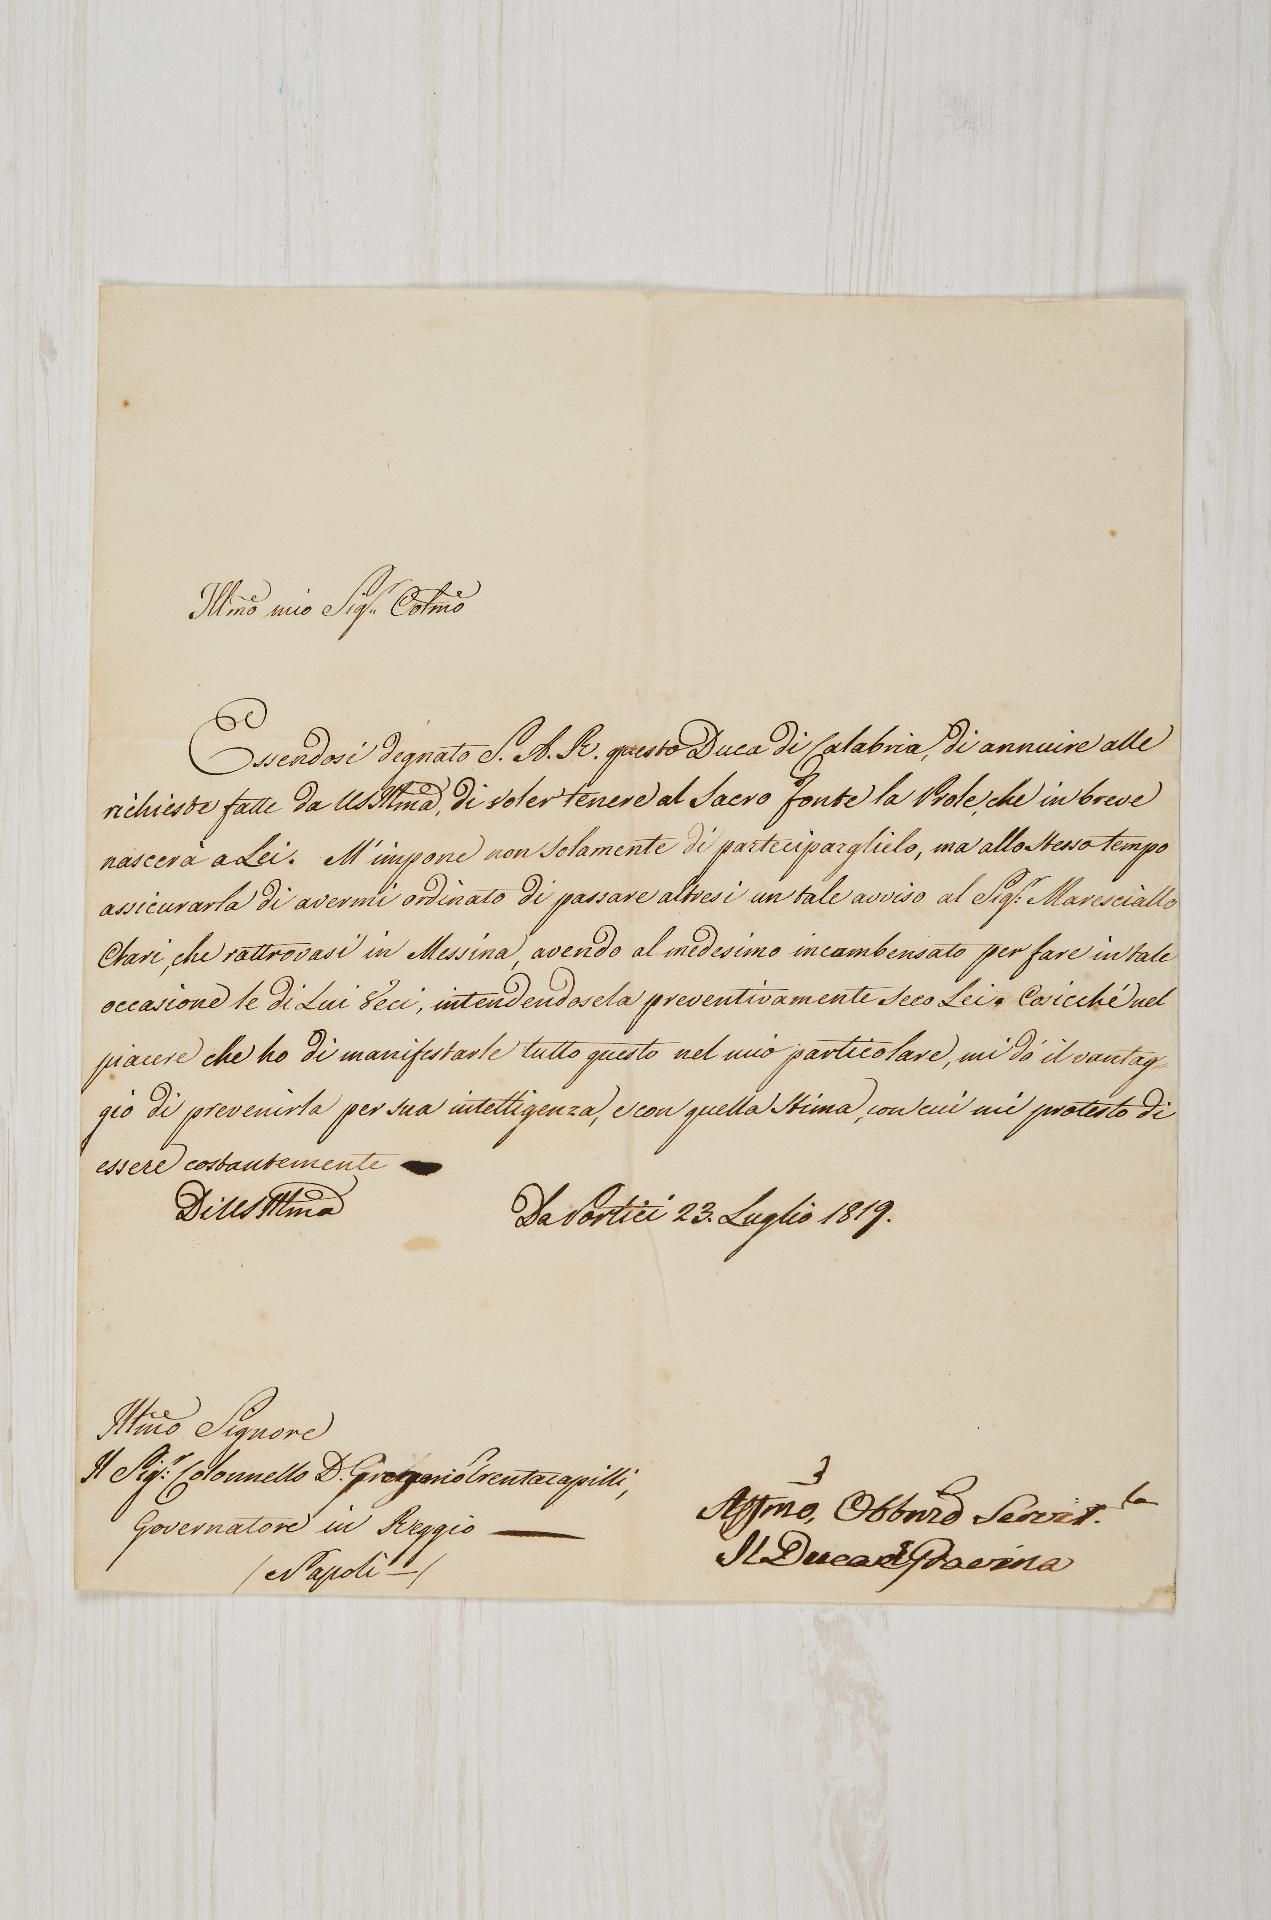 Illmo mio Sigr. Colmo
Essendosi degnato S. A. R. questo Duca di Calabria, di annuire alle
richieste fatte da VS Illma, di voler tenere al Sacro Fonte la Prole, che in breve
nascerà a Lei. M'impone non solamente di parteciparglielo, ma allo stesso tempo
assicurarla di avermi ordinato di passare altresì un tale avviso al Sigr. Maresciallo
Clari, che rattrovasi in Messina, avendo al medesimo incambensato per fare in tale
occasione le di Lui Veci, intendendosela preventivamente seco Lei. Cosicché nel
piacere che ho di manifestarle tutto questo nel mio particolare, mi dò il vantag-
gio di prevenirla per sua intelligenza, e con quella stima, con cui mi protesto di
essere costantemente
Di VS Illma
Da Portici 23. Luglio 1819.
Illmo Signore
Il Sigr. Colonnello D. Gregorio Trentacapilli,
Governatore in Reggio
(Napoli)
Affmo, Obbmo Servit.
Il Duca di Gravina